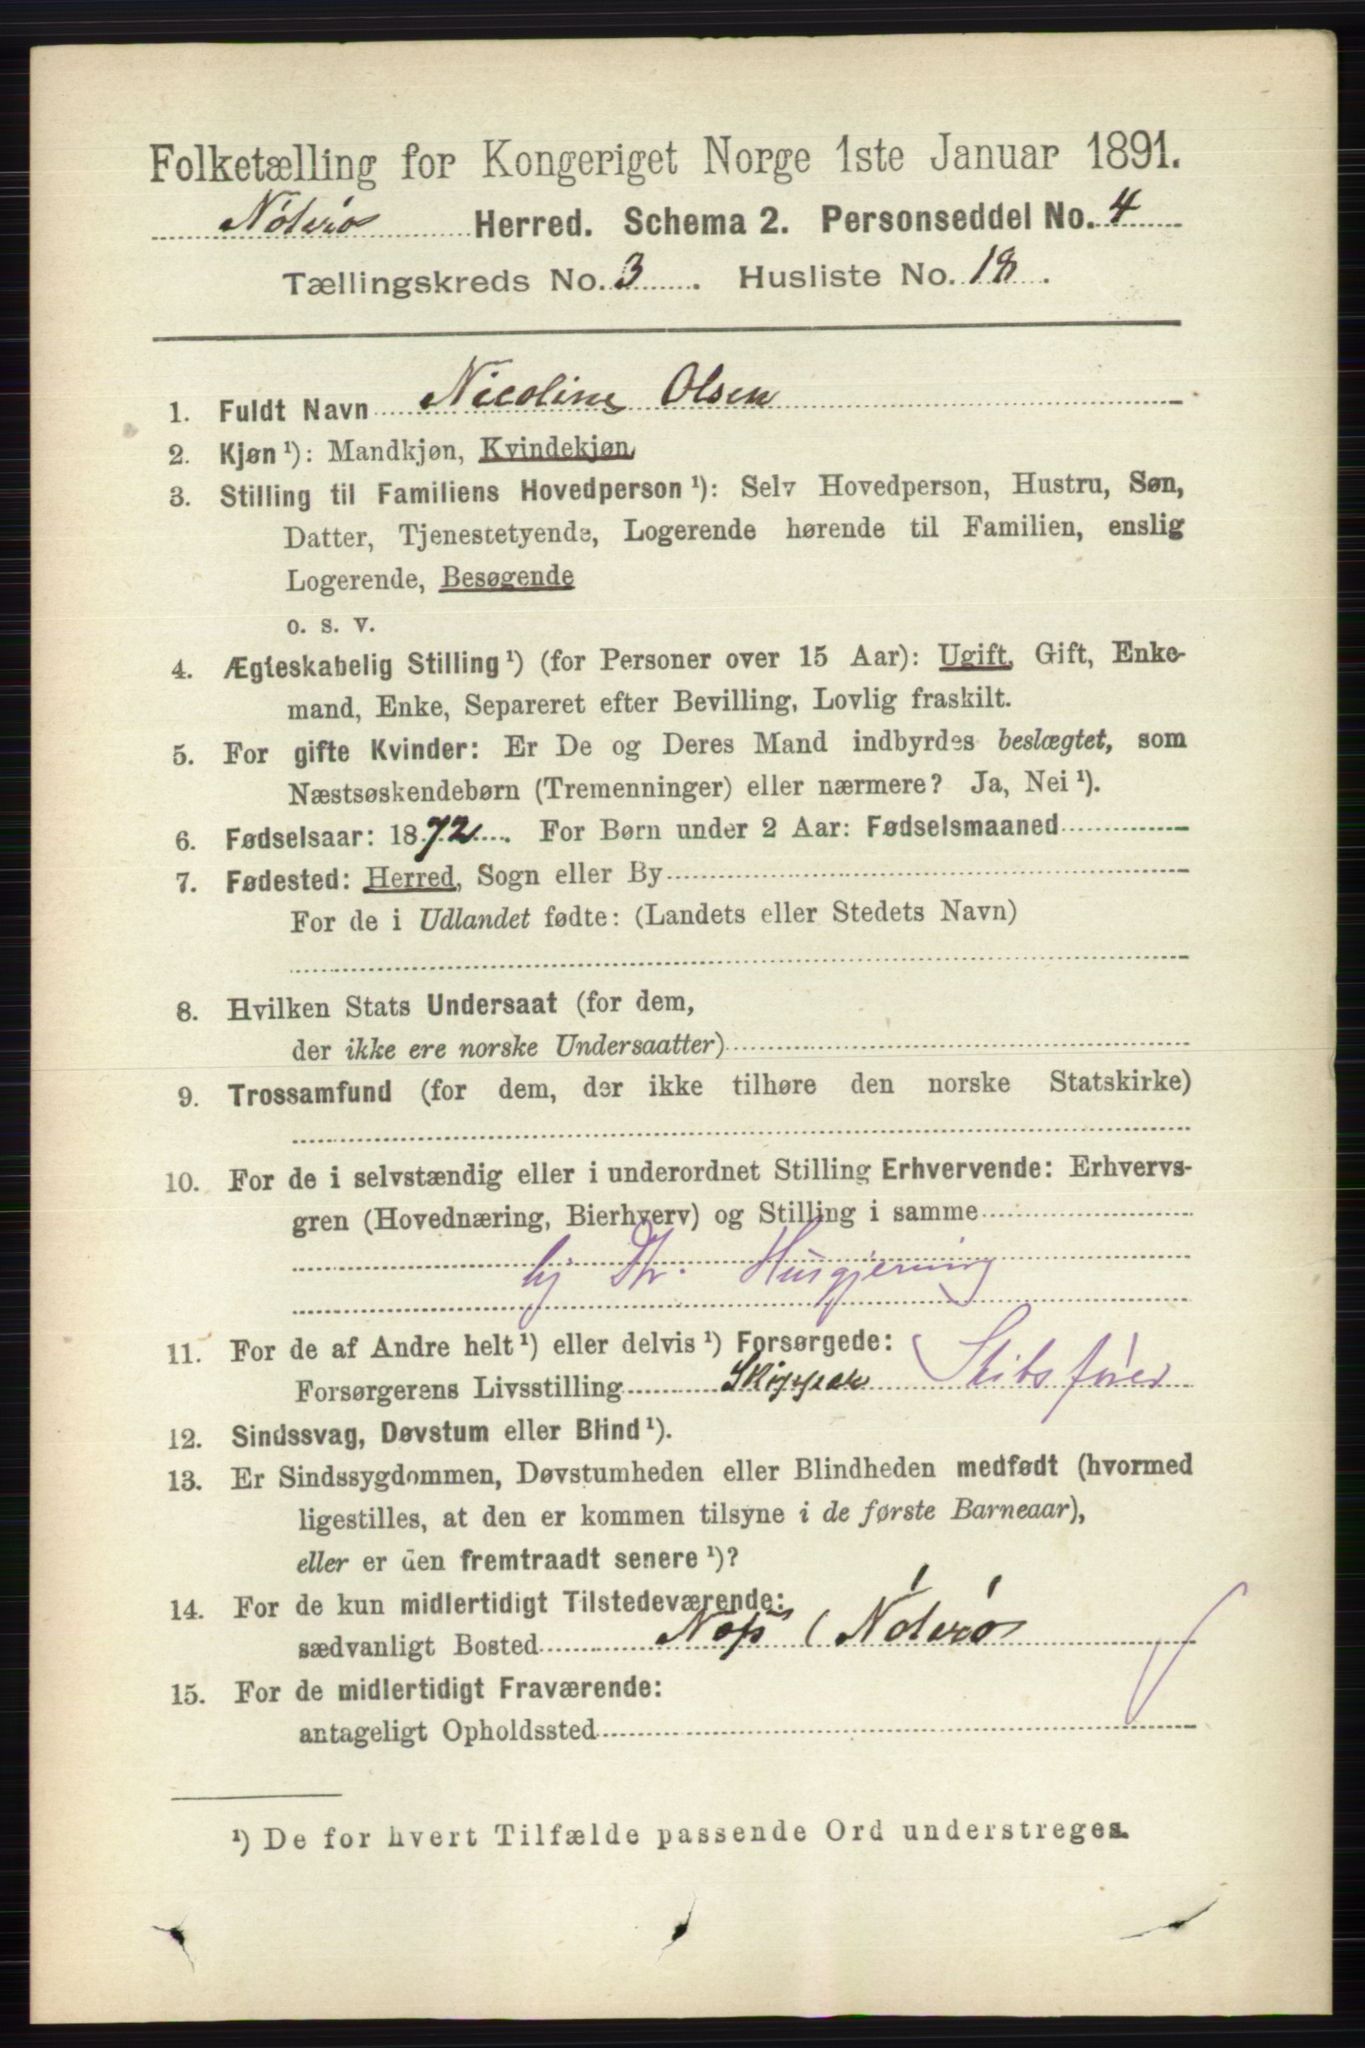 Folketælling for Kongeriget Norge 1ste Januar 1891.
Nøterø Herred. Schema 2. Personseddel No. 4
Tællingskreds No. 3. Husliste No. 18.
1. Fuldt Navn Nicoline Olsen
2. Kjøn ¹): Mandkjøn, Kvindekjøn,
3. Stilling til Familiens Hovedperson ¹): Selv Hovedperson, Hustru, Søn,
Datter, Tjenestetyende, Logerende hørende til Familien, enslig
Logerende, Besøgende
o. s. v.
4. Ægteskabelig Stilling ¹) (for Personer over 15 Aar): Ugift, Gift, Enke-
mand, Enke, Separeret efter Bevilling, Lovlig fraskilt.
5. For gifte Kvinder: Er De og Deres Mand indbyrdes beslægtet, som
Næstsøskendebørn (Tremenninger) eller nærmere? Ja, Nei ¹).
6. Fødselsaar: 1872. For Børn under 2 Aar: Fødselsmaaned
7. Fødested: Herred, Sogn eller By
For de i Udlandet fødte: (Landets eller Stedets Navn)
8. Hvilken Stats Undersaat (for dem,
der ikke ere norske Undersaatter)
9. Trossamfund (for dem, der ikke tilhøre den norske Statskirke)
10. For de i selvstændig eller i underordnet Stilling Erhvervende: Erhvervs-
gren (Hovednæring, Bierhverv) og Stilling i samme
Husgjerning
11. For de af Andre helt ¹) eller delvis ¹) Forsørgede:
Forsørgerens Livsstilling Skipper (Skibsfører
12. Sindssvag, Døvstum eller Blind ¹).
13. Er Sindssygdommen, Døvstumheden eller Blindheden medfødt (hvormed
ligestilles, at den er kommen tilsyne i de første Barneaar),
eller er den fremtraadt senere ¹)?
14. For de kun midlertidigt Tilstedeværende:
sædvanligt Bosted Nøterø
15. For de midlertidigt Fraværende:
antageligt Opholdssted
¹) De for hvert Tilfælde passende Ord understreges.